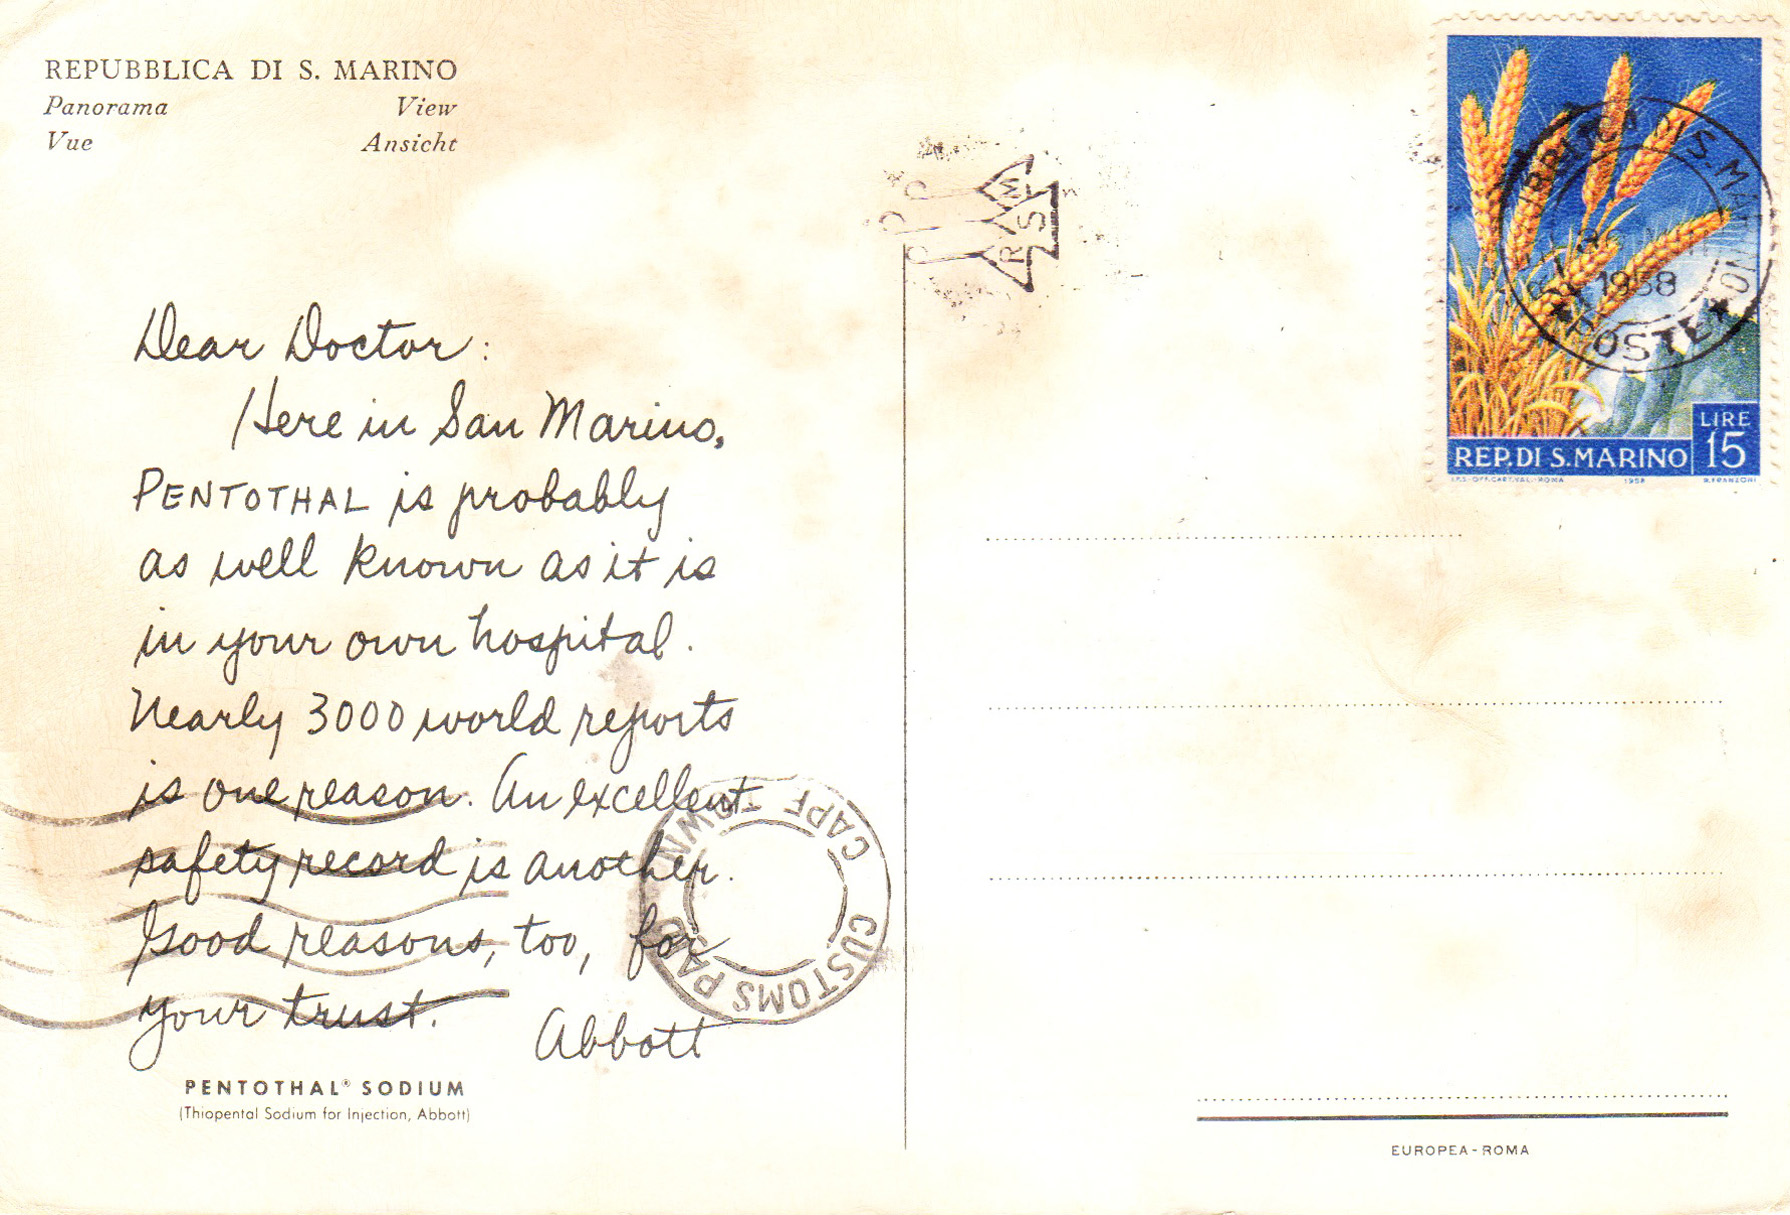 REPUBBLICA DI S. MARINO
Panorama View
Vue Ansicht
Dear Doctor:
Here in San Marino,
PENTOTHAL is probably
as well known as it is
in your own hospital.
Nearly 3000 world reports
is one reason. An excellent
safety record is another.
Good reasons, too, for
your trust.
Abbott
PENTOTHAL® SODIUM
(Thiopental Sodium for Injection, Abbott)
P P P
R S M
DI S. MARINO
1958
POSTE
LIRE
15
REP. DI S. MARINO
I.P.S.-OFF.CART.VAL.-ROMA 1958 R.FRANZONI
CAPE TOWN
CUSTOMS PAID
EUROPEA - ROMA